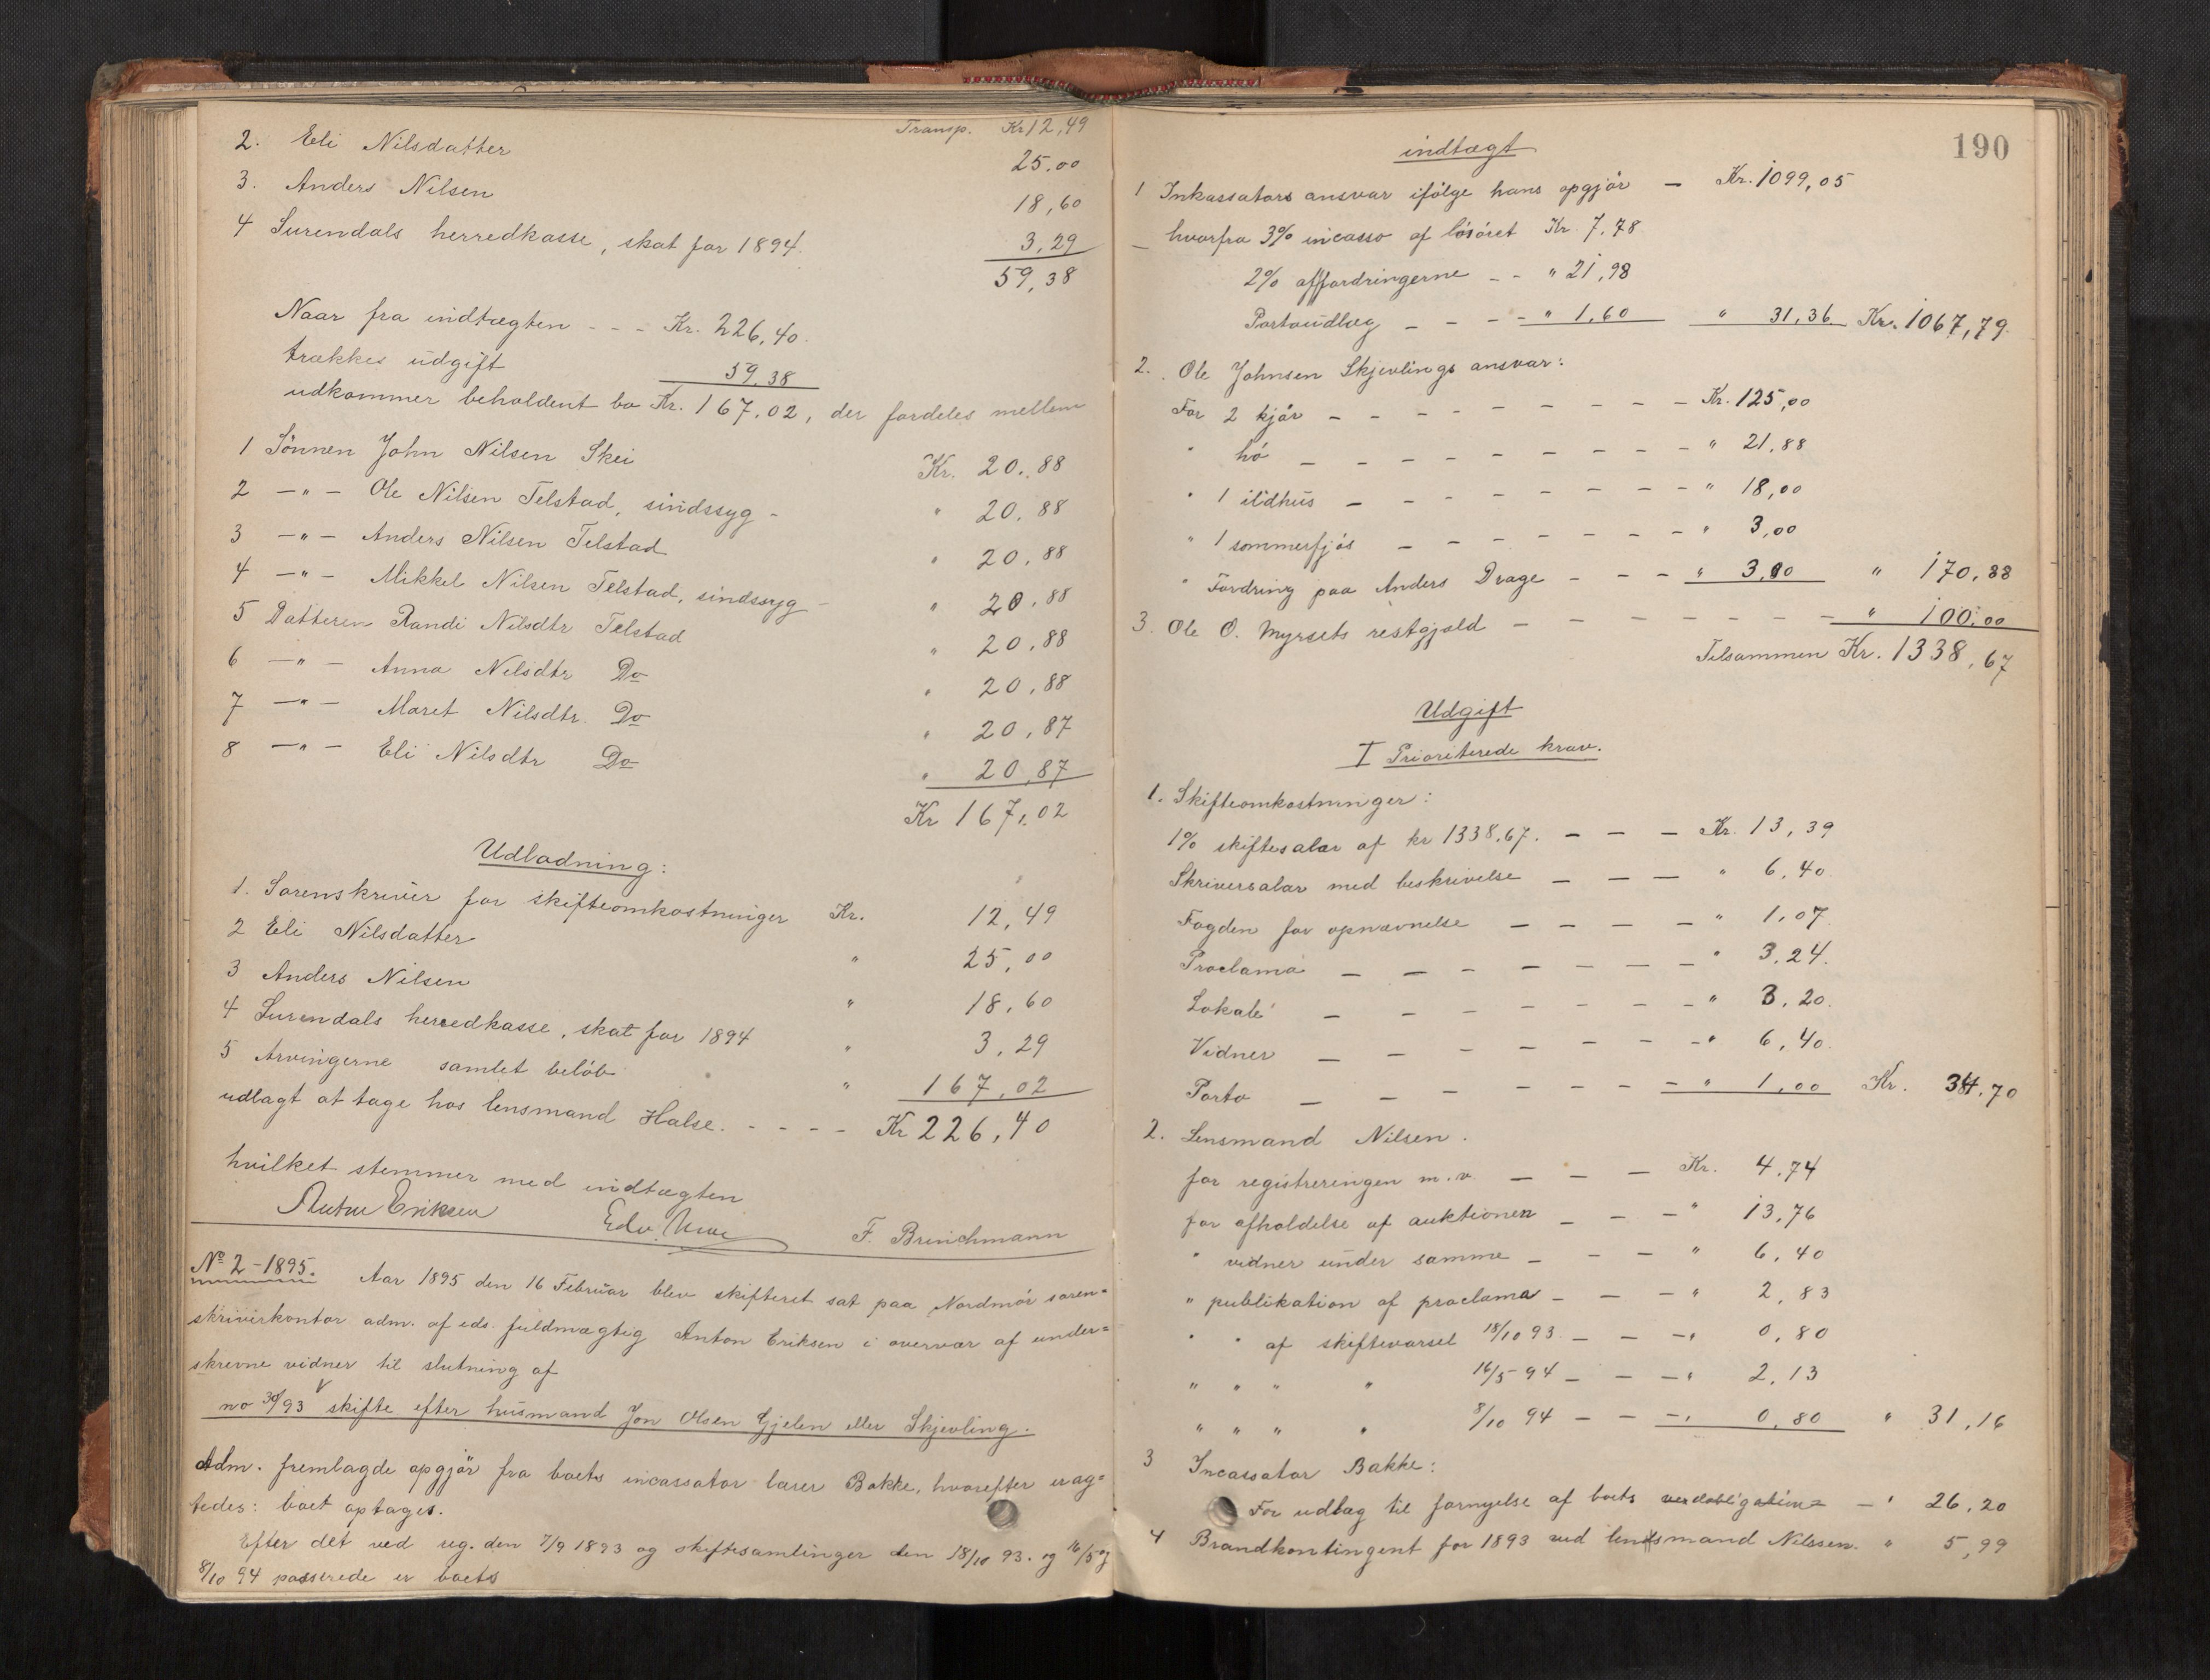 Transp. Kr 12,49
2. Eli Nilsdatter 25,00
3. Anders Nilsen 18,60
4 Surendals herredkasse, skat for 1894. 3,29
59,38
Naar fra indtægten - - - Kr. 226,40.
trækkes udgift 59,38
udkommer beholdent bo Kr. 167.02, der fordeles mellem
1 Sönnen John Nilsen Skei Kr. 20.88
2 —"— Ole Nilsen Telstad, sindssyg - " 20.88
3 —"— Anders Nilsen Telstad " 20.88
4 —"— Mikkel Nilsen Telstad, sindssyg - " 20.88
5 Datteren Randi Nilsdtr Telstad " 20.88
6 —"— Anna Nilsdtr Do " 20.88
7 —"— Maret Nilsdtr. Do " 20.87
8 —"— Eli Nilsdtr Do " 20.87
Kr 167.02
Udlodning:
1. Sorenskriver for skifteomkostninger Kr. 12,49
2 Eli Nilsdatter " 25,00
3 Anders Nilsen " 18,60
4 Surendals herredkasse, skat for 1894 " 3.29
5 Arvingerne samlet belöb " 167.02
udlagt at tage hos lensmand Halse. - - - - Kr 226,40
hvilket stemmer med indtægten
Anton Eriksen Edv. F. Brinchmann
No 2-1895. Aar 1895 den 16 Februar blev skifteret sat paa Nordmör soren=
skriverkontor adm. af eds. fuldmægtig Anton Eriksen i overvær af under=
skrevne vidner til slutning af
no 30/93 skifte efter husmand Jon Olsen Gjelen eller Skjevling.
Adm. fremlagde opgjör fra boets incassator lærer Bakke, hvorefter erag=
tedes: boet optaget.
Efter det ved reg. den 7/9 1893 og skiftesamlinger den 18/10 93. og 16/5 og
8/10 94 passerede er boets
190
indtægt
1 Inkassators ansvar ifölge hans opgjör — Kr. 1099,05
— hvorfra 3% incasso af lösöret Kr. 7.78
2% af fordringerne - - " 21,98
Portoudlæg - - - - " 1,60 " 31,36 Kr. 1067,79.
2. Ole Johnsen Skjevlings ansvar:
For 2 kjör - - - - - - - - Kr. 125,00
" hö - - - - - - - - - " 21,88
" 1 ildhus - - - - - - - - " 18,00
" 1 sommerfjös - - - - - - - " 3,00
" Fordring paa Anders Drage - - - " 3,00 " 170,88
3. Ole O. Myrsets restgjæld - - - - - - - " 100,00
Tilsammen Kr. 1338,67
Udgift
I Prioriterede krav.
1. Skifteomkostninger:
1% skiftesalær af kr 1338.67. - - - Kr. 13,39
Skriversalær med beskrivelse - - - " 6,40
Fogden for opnævnelse - - - - " 1.07.
Proclama - - - - - - - " 3.24.
Lokale - - - - - - - " 3.20.
Vidner - - - - - - - " 6,40.
Porto - - - - - - - " 1,00 Kr. 34.70
2. Lensmand Nilsen.
for registreringen m.v. - - - Kr. 4.74
for afholdelse af auktionen - - - " 13,76
" vidner under samme - - - " 6,40
" publikation af proclama - - - " 2,83
" " af skiftevarsel 18/10 93 - - - " 0,80
" " " " 16/5 94 - - - " 2,13
" " " " 8/10 94 - - - " 0,80 " 31,16
3 Incassator Bakke:
For udlæg til fornyelse af boets - " 26,20
4 Brandkontingent for 1893 ved lensmand Nilssen. " 5,99